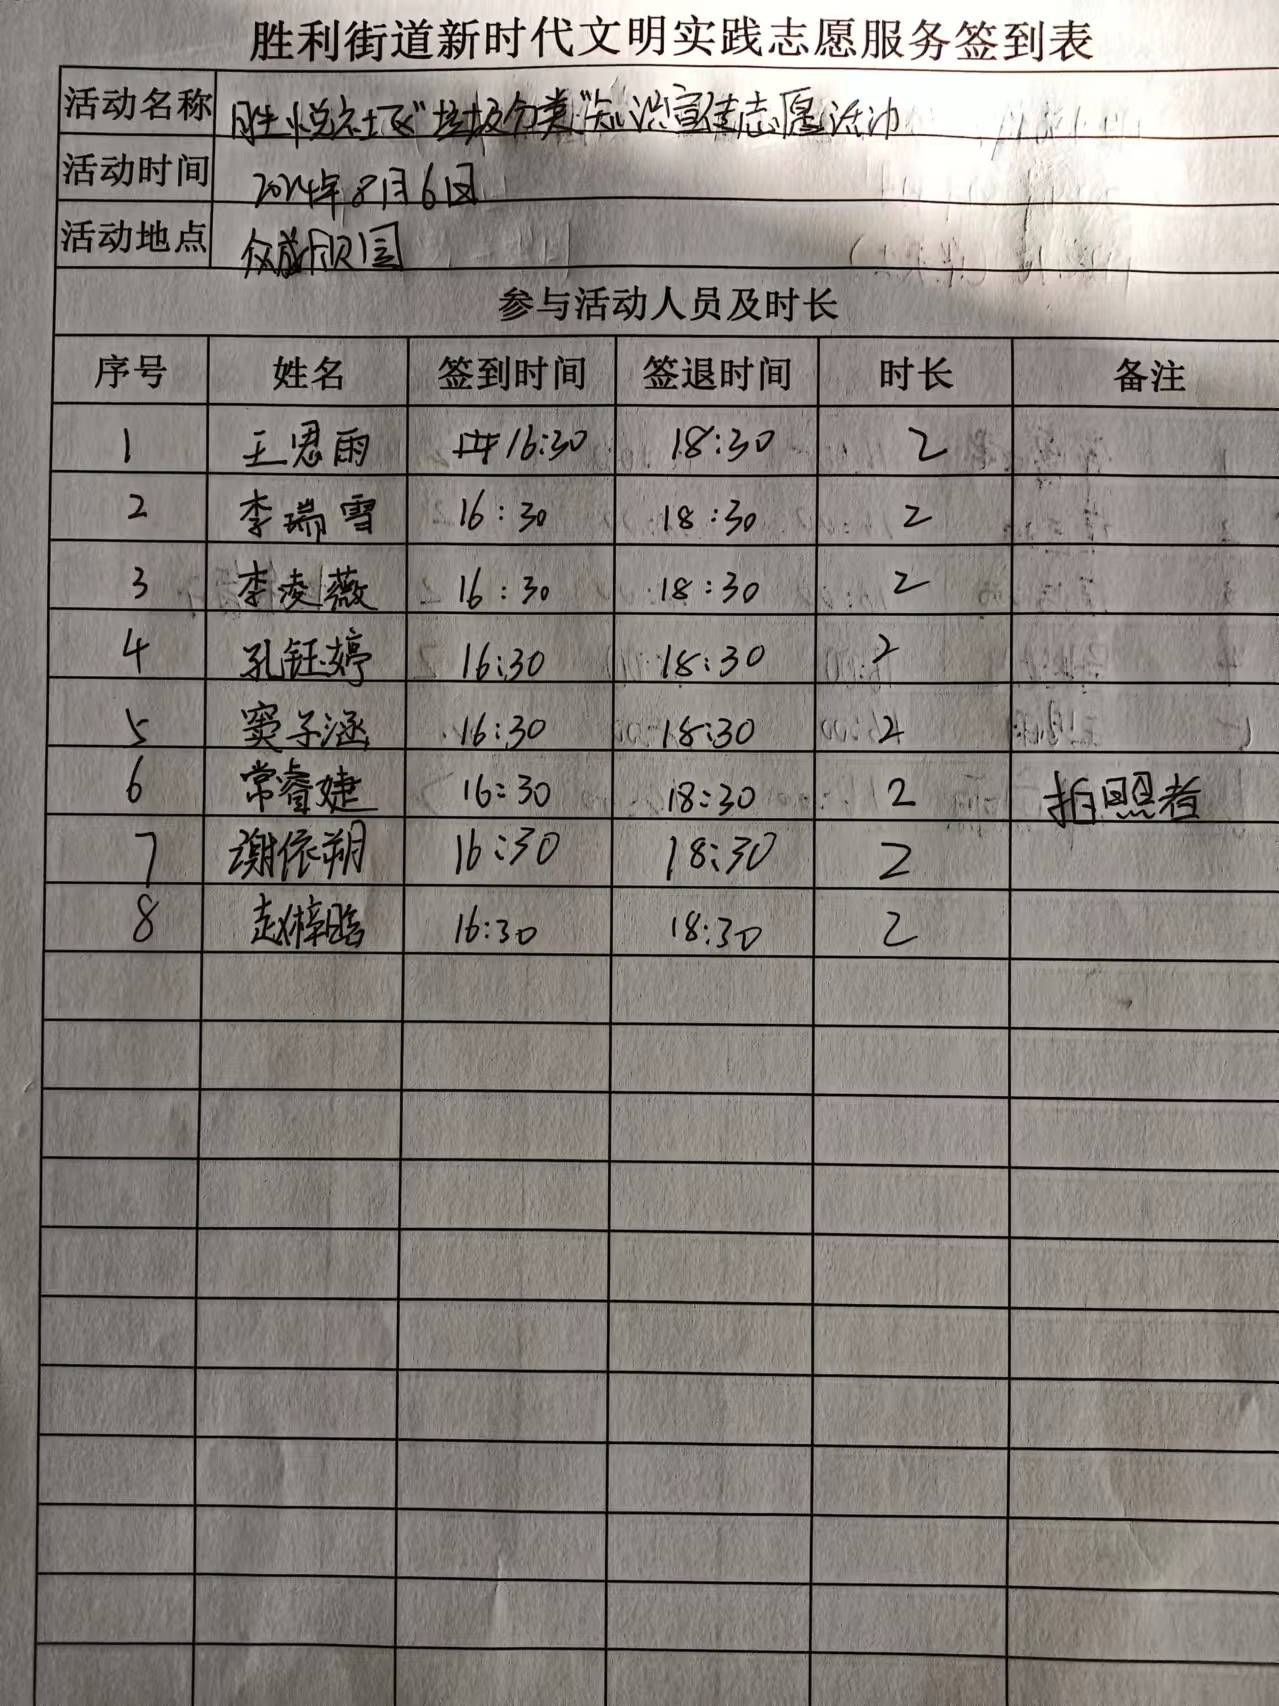 胜利街道新时代文明实践志愿服务签到表
活动名称 胜悦社区"垃圾分类"知识宣传志愿活动
活动时间 2024年8月6日
活动地点 众成欣园
参与活动人员及时长
序号 姓名 签到时间 签退时间 时长 备注
1 王思雨 16:30 18:30 2
2 李瑞雪 16:30 18:30 2
3 李凌薇 16:30 18:30 2
4 孔钰婷 16:30 18:30 2
5 窦子涵 16:30 18:30 2
6 常睿婕 16:30 18:30 2 拍照者
7 谢依朔 16:30 18:30 2
8 赵梓晗 16:30 18:30 2